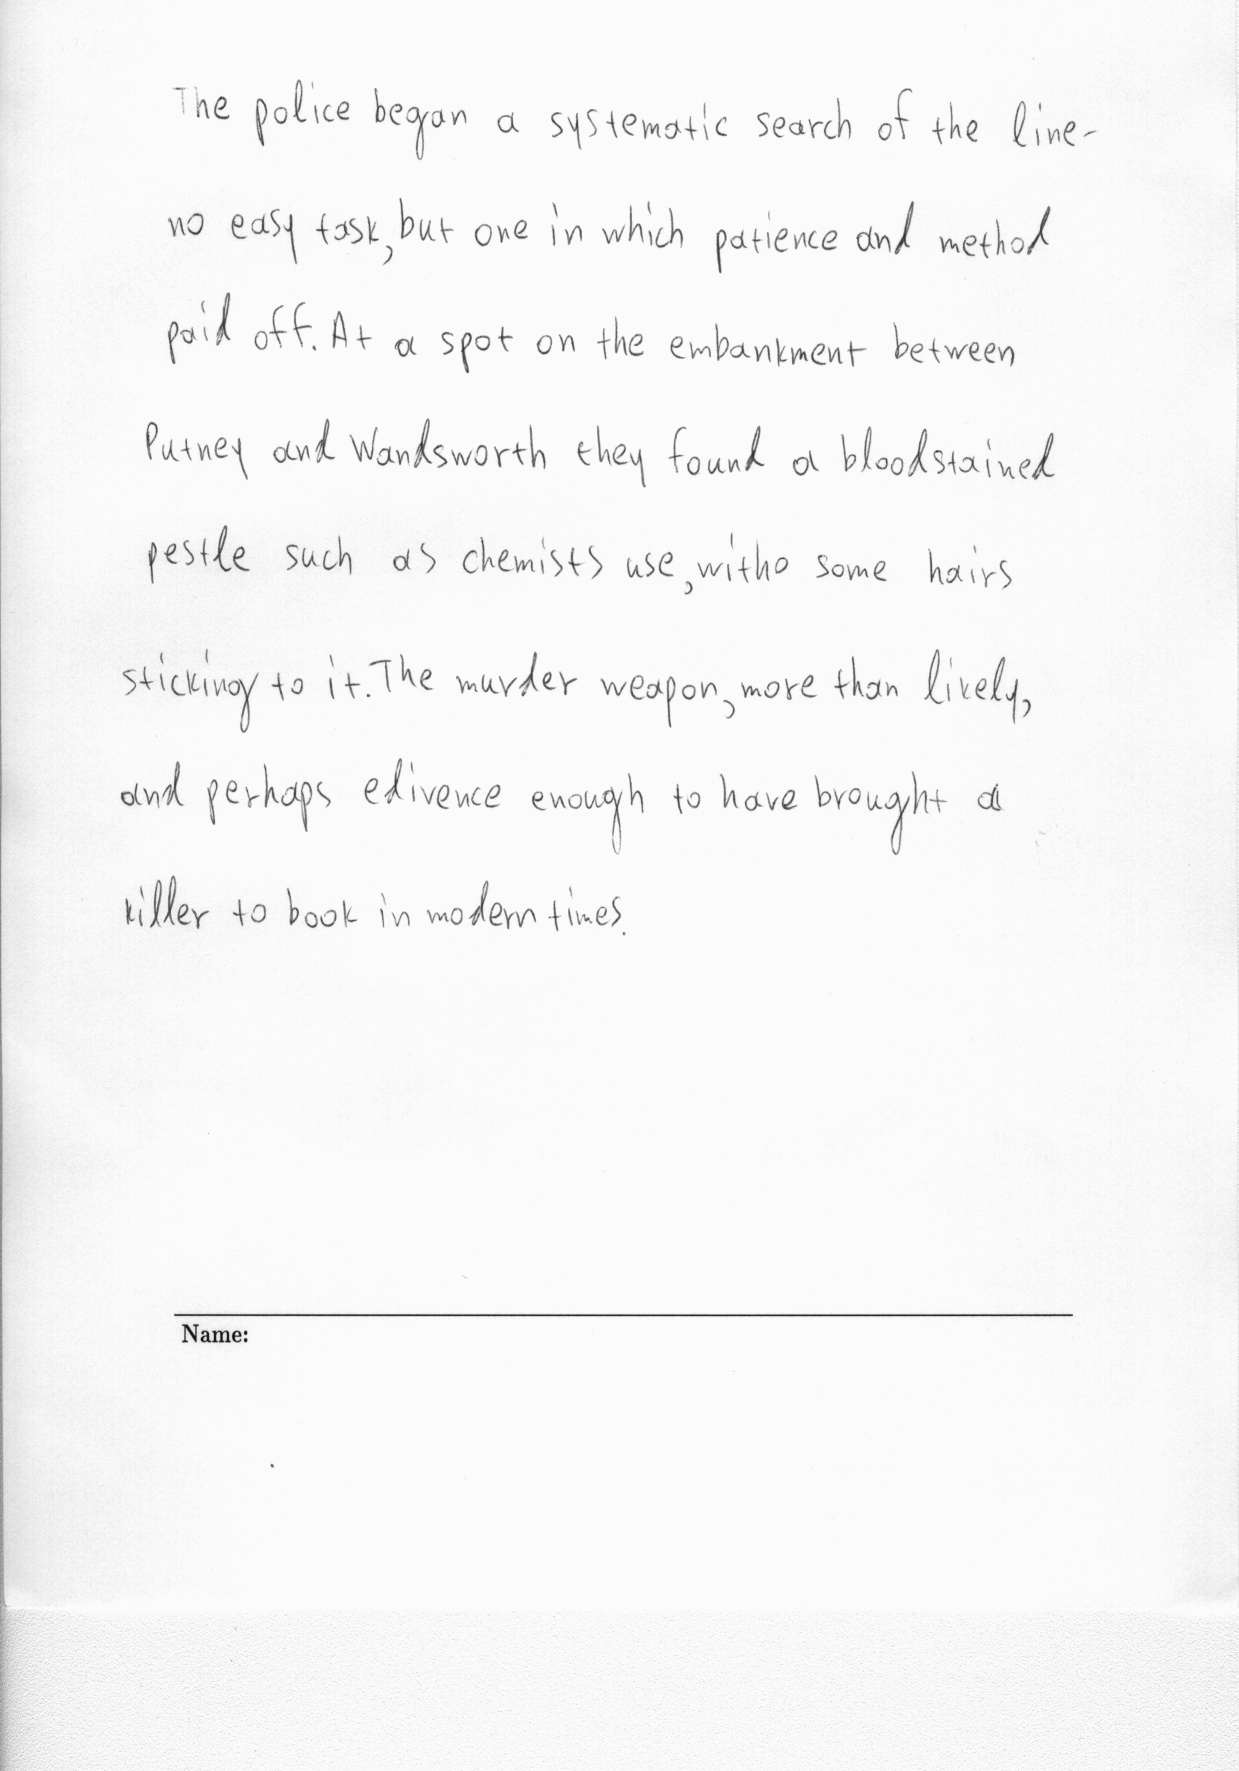 The police began a systematic search of the line-
no easy task, but one in which patience and method
paid off. At a spot on the embankment between
Putney and Wandsworth they found a bloodstained
pestle such as chemists use, witho some hairs
sticking to it. The murder weapon, more than likely,
and perhaps edivence enough to have brought a
killer to book in modern times.
Name: